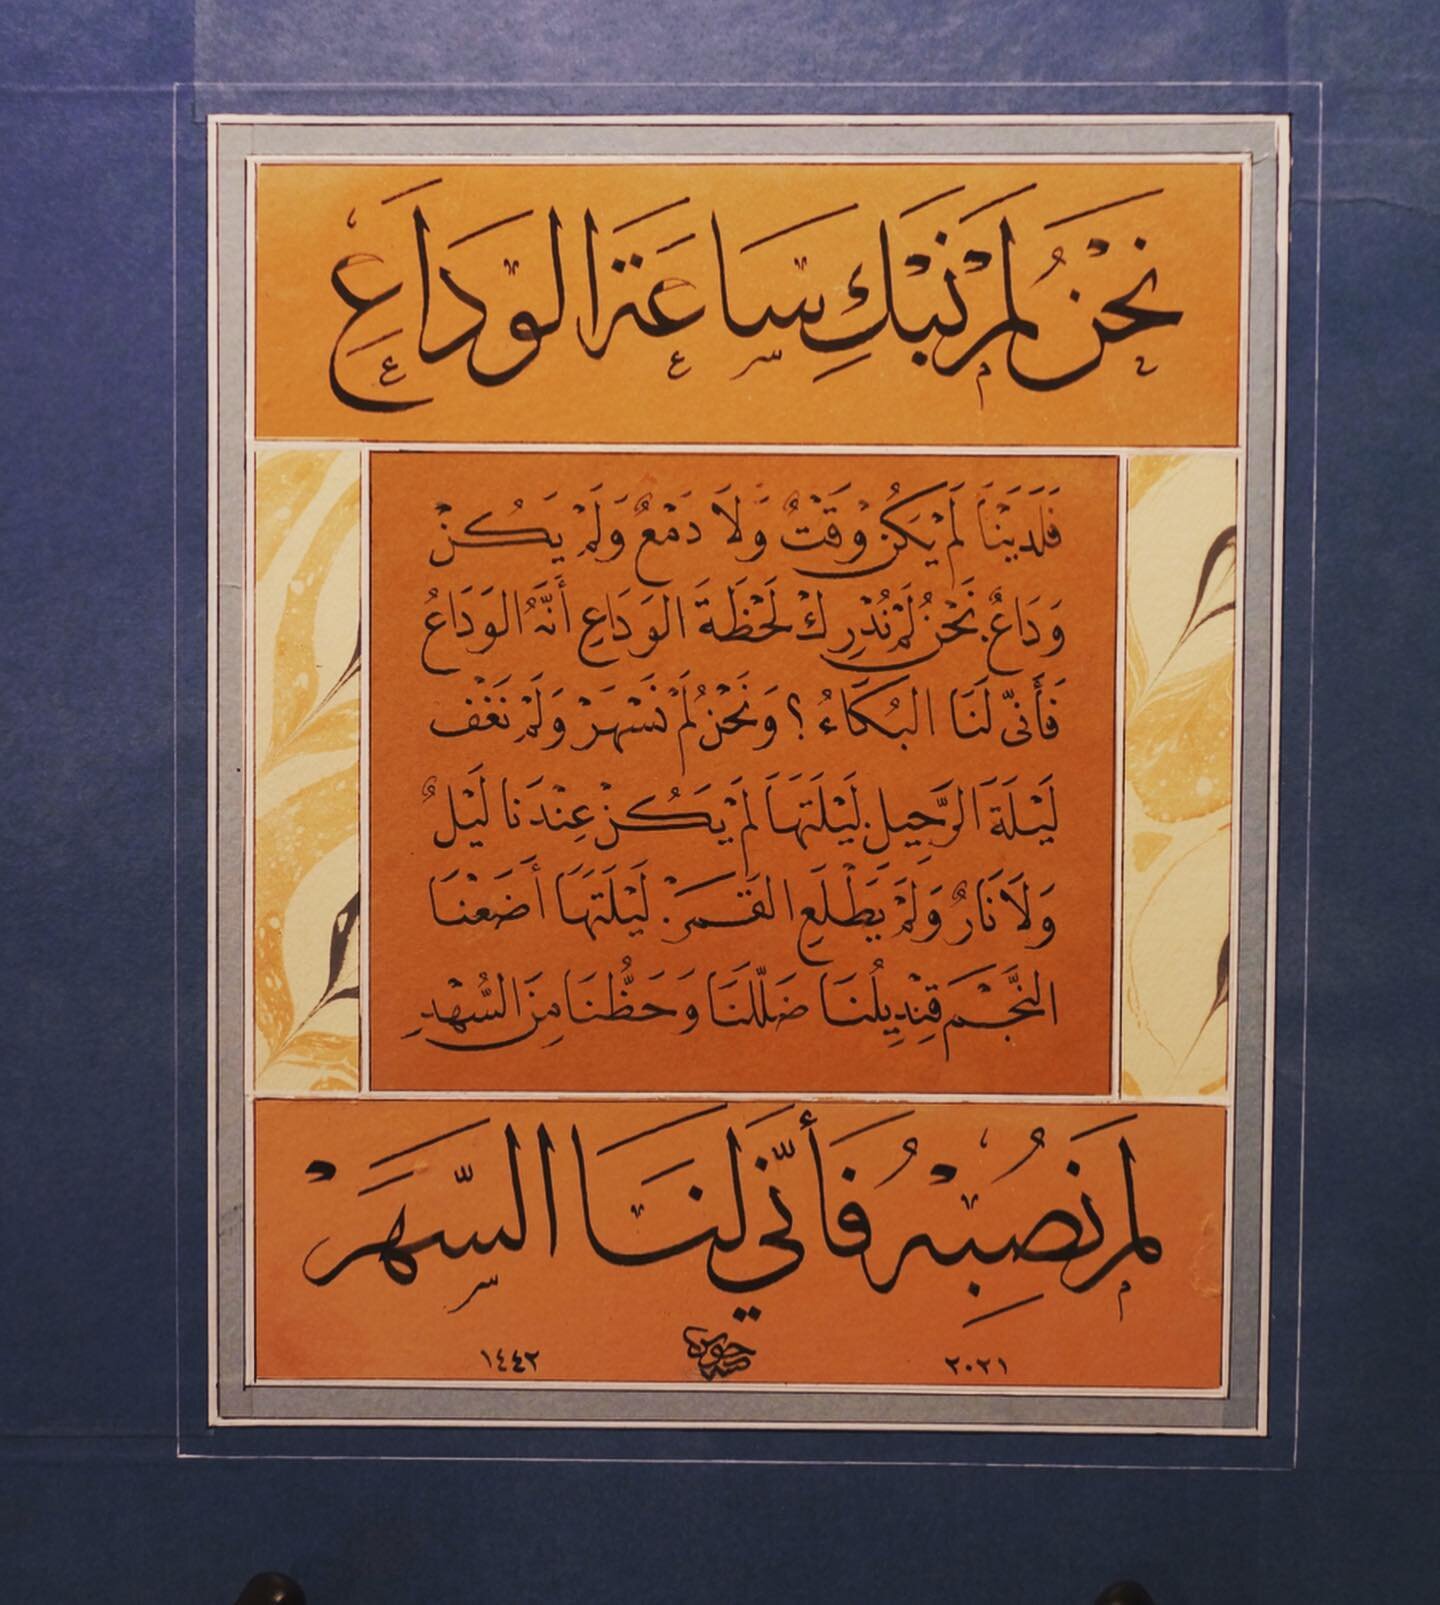 نَحْنُ لَمْ نَبْكِ سَاعَةَ الوَدَاعِ
فَلَدَيْنَا لَمْ يَكُنْ وَقْتٌ وَلَا دَمْعٌ وَلَمْ يَكُنْ
وَدَاعٌ. نَحْنُ لَمْ نُدْرِكْ لَحْظَةَ الوَدَاعِ أَنَّهُ الوَدَاعُ
فَأَنَّى لَنَا البُكَاءُ؟ وَنَحْنُ لَمْ نَسْهَرْ وَلَمْ نَغْفُ
لَيْلَةَ الرَّحِيلِ. لَيْلَتَهَا لَمْ يَكُنْ عِنْدَنَا لَيْلٌ
وَلَا نَارٌ وَلَمْ يَطْلَعِ القَمَرْ. لَيْلَتَهَا أَضَعْنَا
النَّجْمَ قِنْدِيلُنَا ضَلَّلَنَا وَحَظُّنَا مِنَ السُّهْدِ
لَمْ نُصِبْهُ فَأَنَّى لَنَا السَّهَرْ
٢٠٢١ ١٤٤٢